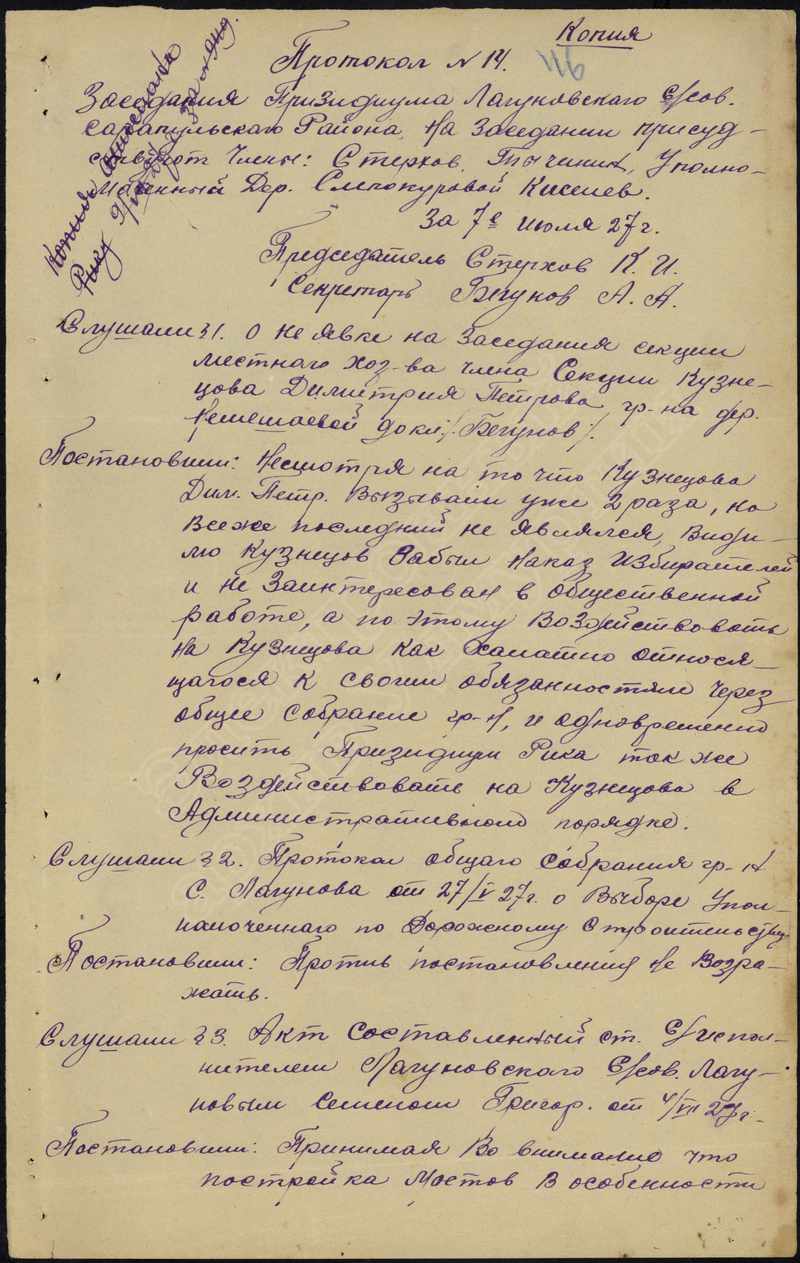 Копия
Протокол № 14.
116
Копия описана
Рику 9/VII 27г. За №
Заседания Призидиума Лагуновского С/сов.
Сарапульскаго Района, На Заседании присуд-
ствуют Члены: Стерхов, Тычинин, Уполно-
моченный Дер. Слепокуровой Киселев.
За 7е июля 27 г.
Председатель Стерхов К. И.
Секретарь Бегунов А. А.
Слушали § 1. О не явке на Заседания секции
местнаго хоз-ва члена Секции Кузне-
цова Димитрия Петрова, гр-на дер.
докл. /Бегунов/.
Постановили: Несмотря на то что Кузнецова
Дим. Петр. вызывали уже 2 раза, но
все же последний не являлся, Види-
мо Кузнецов Забыл Наказ Избирателей
и не Заинтересован в общественной
работе, а по этому Воздействовать
на Кузнецова как халатно относя-
щагося к своим обязанностям через
общее собрание гр-н, и одновременно
просить Призидиум Рика так же
Воздействовать на Кузнецова в
Административном порядке.
Слушали § 2. Протокол общаго собрания гр-н
С. Лагунова от 27/V 27г. о Выборе Упол-
намоченнаго по Дорожному Строительству
Постановили: Против постановления Не Возра-
жать.
Слушали § 3. Акт составленный ст. С/испол-
нителем Лагуновского С/сов. Лагу-
новым Семеном Григор. от 4/VII 27г.
Постановили: Принимая Во внимание что
постройка Мостов В особенности